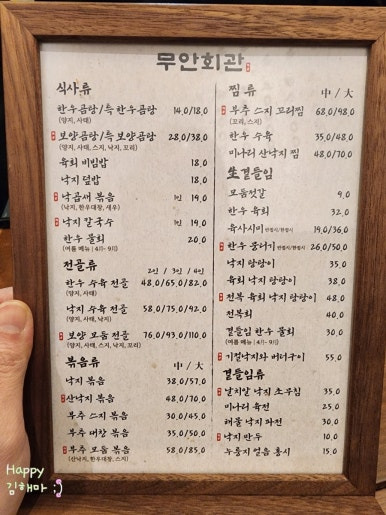 무안회관
식사류
한우곰탕/특 한우곰탕 14.0/18.0
(양지, 사태)
보양곰탕/특 보양곰탕 28.0/38.0
(양지, 사태, 스지, 낙지, 꼬리)
육회 비빔밥 18.0
낙지 덮밥 18.0
낙곱새 볶음 1인 19.0
(낙지, 한우대창, 새우)
낙지 칼국수 1인 19.0
한우 물회 20.0
(여름 메뉴 | 4월-9월)
전골류 2인 / 3인 / 4인
한우 수육 전골 48.0/65.0/82.0
(양지, 사태)
낙지 수육 전골 58.0/75.0/92.0
(양지, 사태, 낙지)
보양 모둠 전골 76.0/93.0/110.0
(양지, 사태, 스지, 낙지, 꼬리)
볶음류 中 / 大
낙지 볶음 38.0/57.0
산낙지 볶음 48.0/70.0
부추 스지 볶음 30.0/45.0
부추 대창 볶음 35.0/50.0
부추 모둠 볶음 58.0/85.0
(산낙지, 한우대창, 스지)
찜류 中 / 大
부추 스지 꼬리찜 68.0/98.0
(꼬리, 스지)
한우 수육 35.0/48.0
미나리 산낙지 찜 48.0/70.0
生곁들임
모둠젓갈 9.0
한우 육회 32.0
육사시미 19.0/36.0
한우 뭉티기 26.0/50.0
낙지 탕탕이 35.0
육회 낙지 탕탕이 38.0
전복 육회 낙지 탕탕이 48.0
전복회 40.0
곁들임 한우 물회 30.0
(여름 메뉴 | 4월-9월)
기절낙지와 버터구이 55.0
곁들임류
날치알 낙지 초무침 35.0
미나리 육전 25.0
해물 낙지 파전 30.0
낙지 만두 10.0
누룽지 얼음 홍시 15.0
Happy
김해마